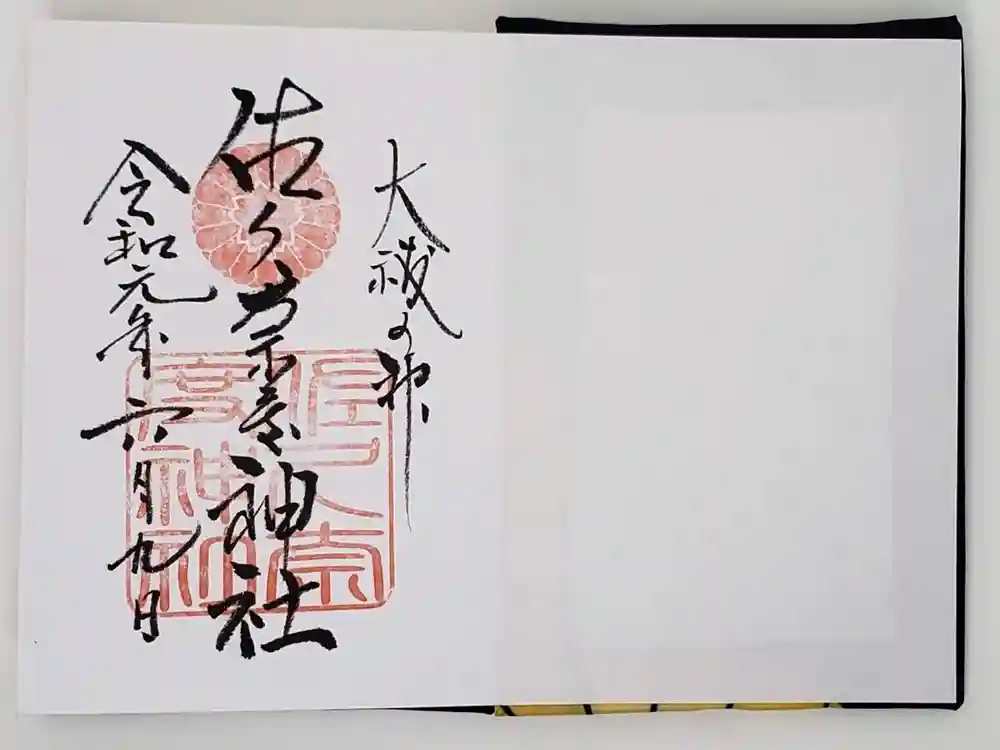 大祓の神
佐久奈度神社
令和元年六月九日
佐久奈度神社